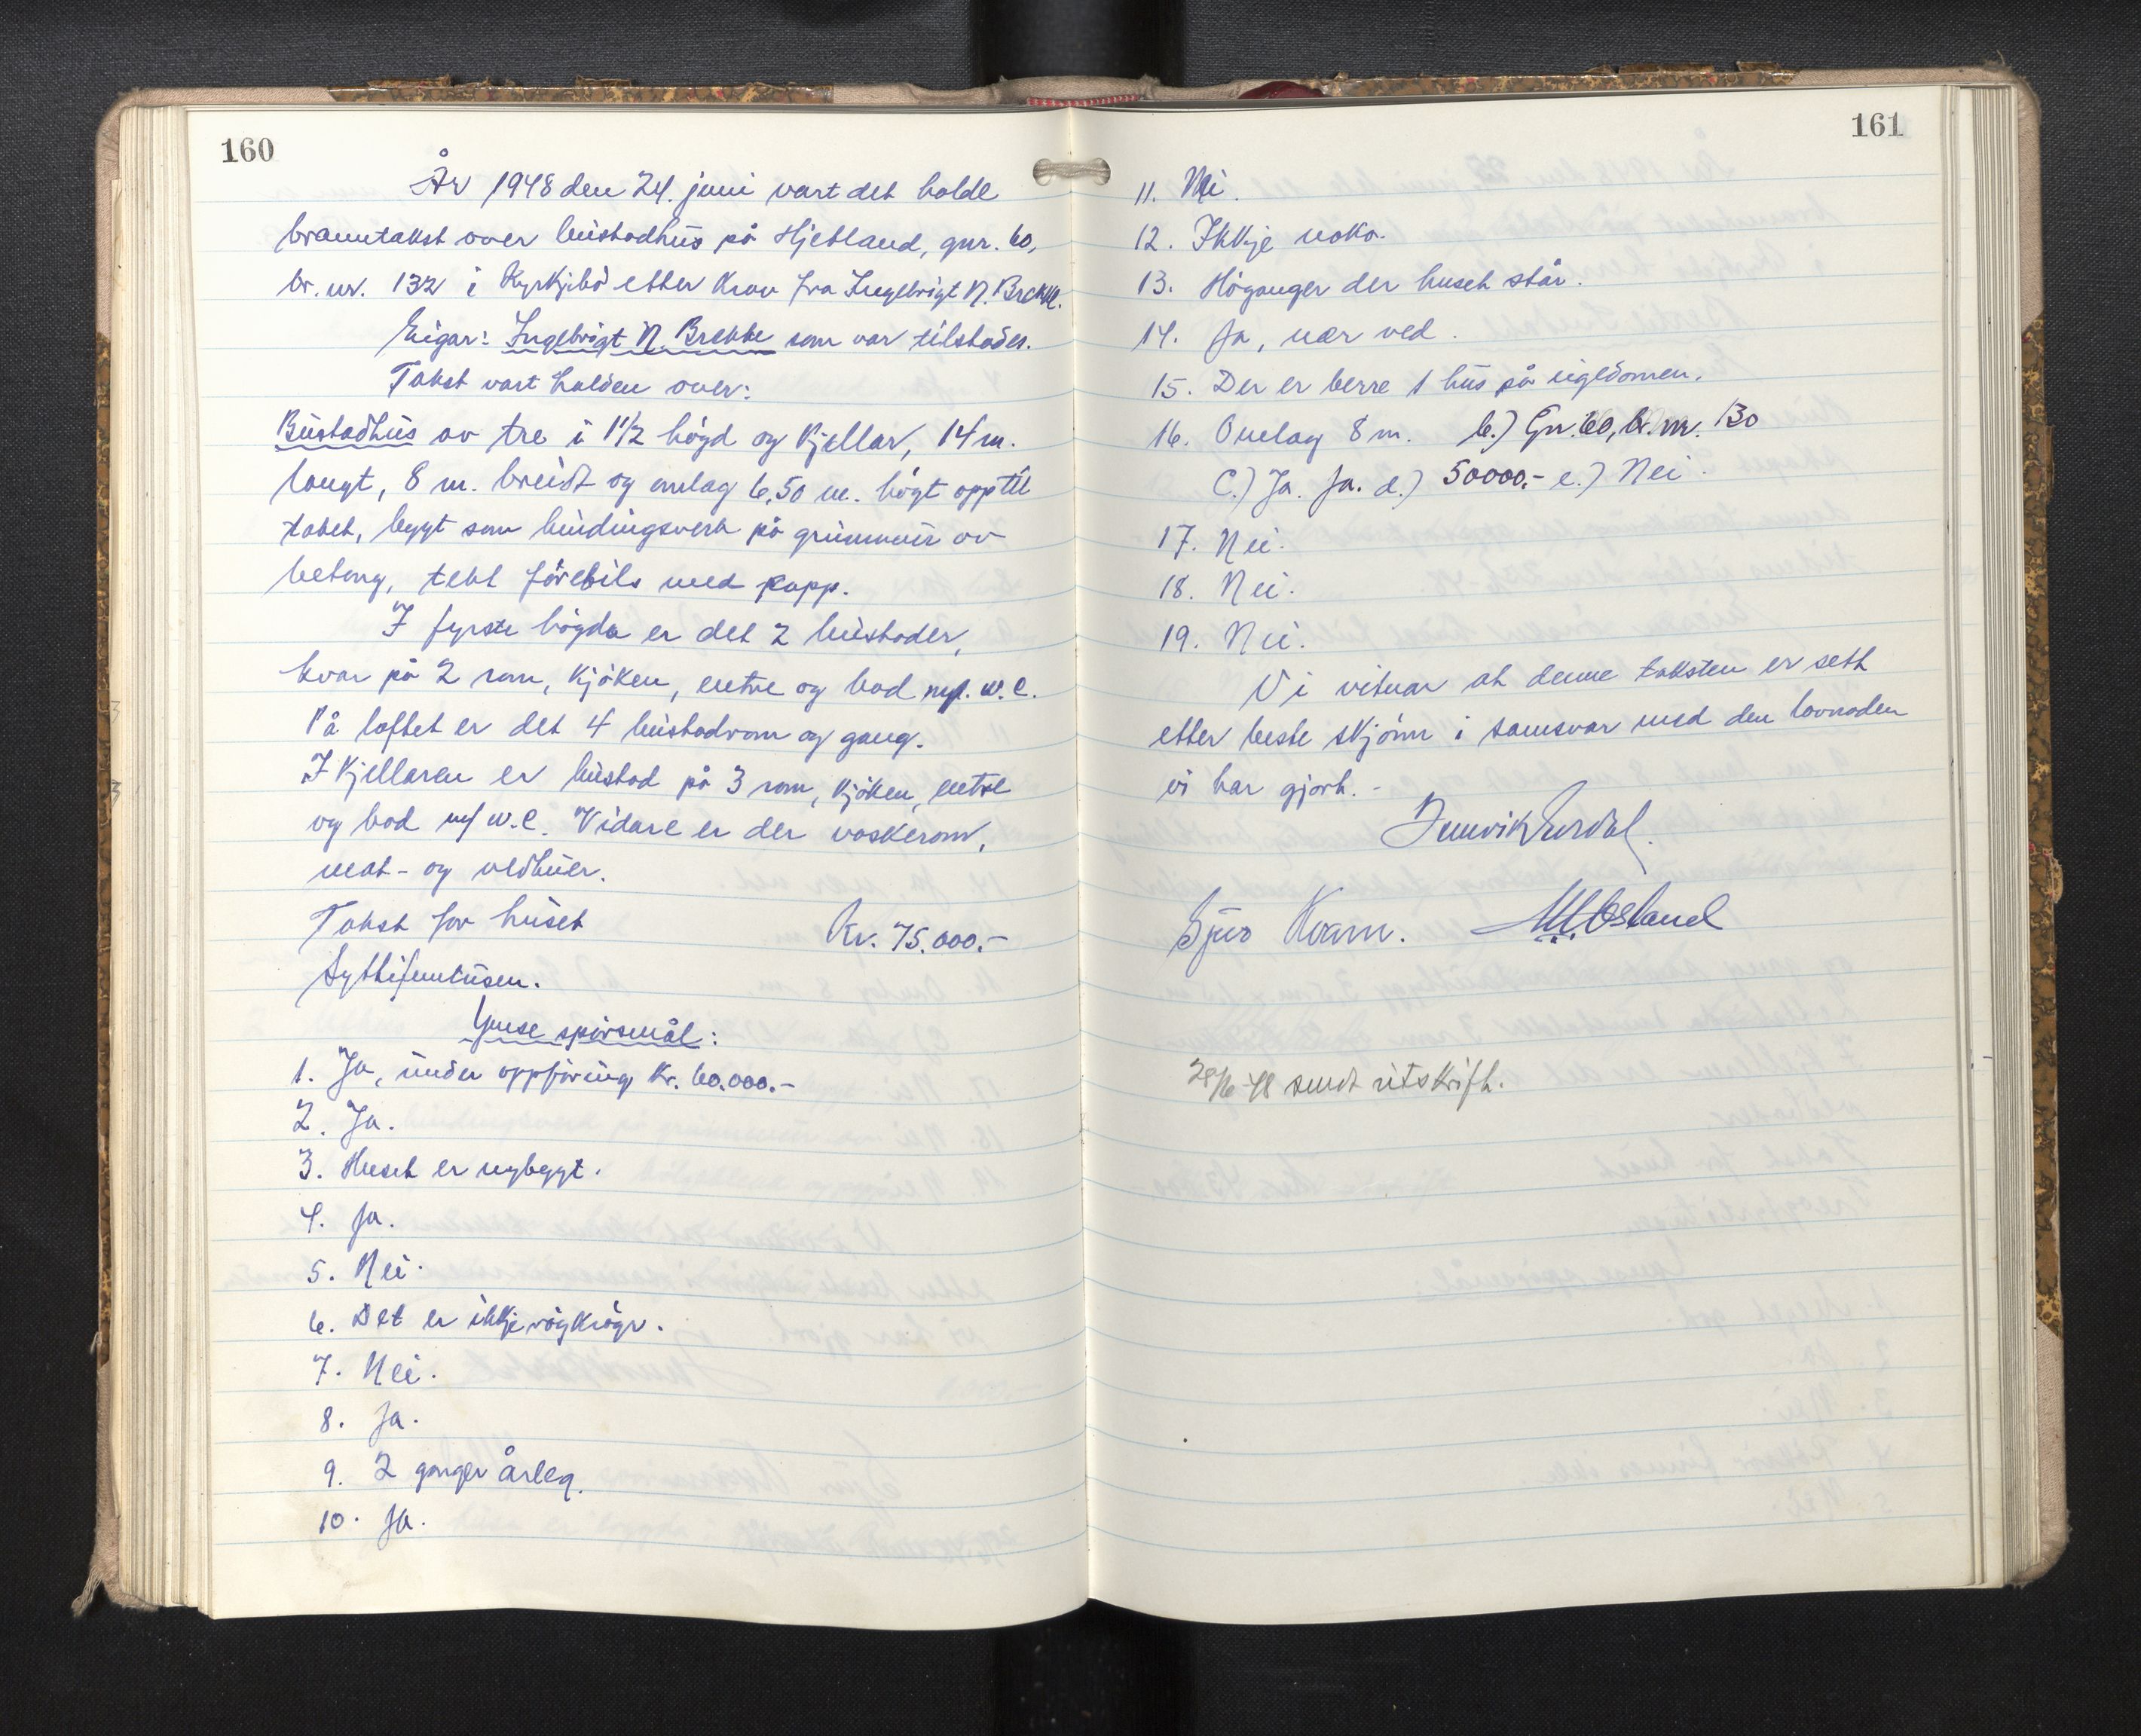 160
År 1948 den 24. juni vart det halde
branntakst over bustadhus på Hjetland, gnr. 60,
br. nr. 132 i Kyrkjebö etter krav fra Ingebrigt N. Brekke.
Eigar: Ingebrigt N. Brekke som var tilstades.
Takst vart halden over:
Bustadhus av tre i 1 1/2 högd og kjellar, 14 m.
langt, 8 m. breidt og omlag 6,50 m. högt opp til
taket, bygt som bindingsverk på grunnmur av
betong, tekt förebils med papp.
I fyrste högda er det 2 bustader,
kvar på 2 rom, kjöken, entre og bad m/. w.c.
På loftet er det 4 bustadrom og gang.
I kjellaren er bustad på 3 rom, kjöken, entre
og bad m/ w.c. Vidare er der vaskerom,
mat- og vedbuer.
Takst for huset Kr. 75.000.-
Syttifemtusen.
Ymse spörsmål:
1. Ja, under oppföring kr. 60.000.-
2. Ja.
3. Huset er nybygt.
4. Ja.
5. Nei.
6. Det er ikkje röykrögr.
7. Nei.
8. Ja.
9. 2 ganger årleg.
10. Ja.
161
11. Nei.
12. Ikkje noko.
13. Höganger der huset står.
14. Ja, nær ved.
15. Der er berre 1 hus på eigedomen.
16. Omlag 8 m. b.) Gnr. 60, br. nr. 130
C.) Ja. Ja. d.) 50000.- e.) Nei.
17. Nei.
18. Nei.
19. Nei.
Vi vitnar at denne taksten er sett
etter beste skjönn i samsvar med den lovnaden
vi har gjort. -
Sjur Kvam. M. Østland
28/6-48 sendt utskrift.